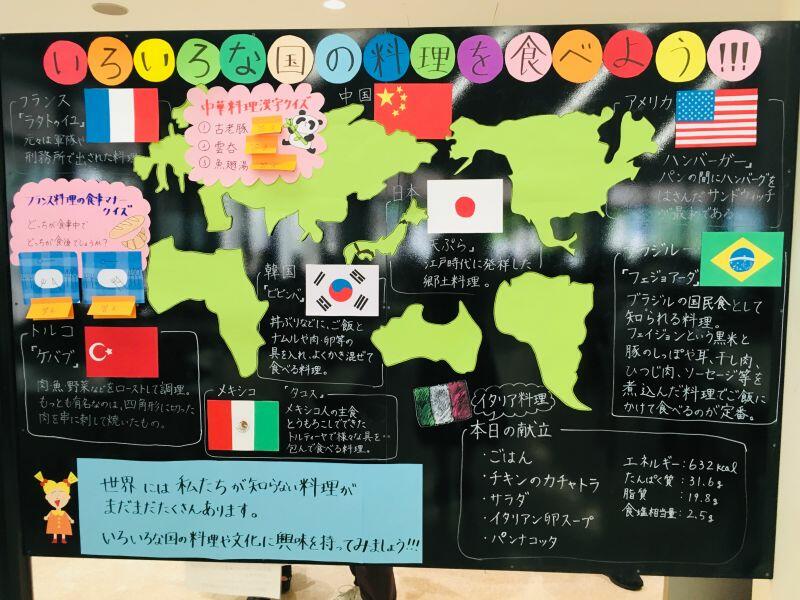 いろいろな国の料理を食べよう!!!
フランス
『ラタトゥイユ』
元々は軍隊や
刑務所で出された料理
中華料理漢字クイズ
① 古老豚
② 雲呑
③ 魚翅湯
中国
アメリカ
『ハンバーガー』
パンの間にハンバーグを
はさんだサンドウィッチ
フランス料理の食事マナー
クイズ
どっちが食事中で
どっちが食後でしょうか？
日本
『天ぷら』
江戸時代に発祥した
郷土料理。
韓国
『ビビンバ』
丼ぶりなどに、ご飯と
ナムルや肉・卵等の
具を入れ、よくかき混ぜて
食べる料理。
ブラジル
『フェジョアーダ』
ブラジルの国民食として
知られる料理。
フェイジョンという黒米と
豚のしっぽや耳、干し肉、
ひつじ肉、ソーセージ等を
煮込んだ料理でご飯に
かけて食べるのが定番。
トルコ
『ケバブ』
肉・魚・野菜などをローストして調理。
もっとも有名なのは、四角形に切った
肉を串に刺して焼いたもの。
メキシコ
『タコス』
メキシコ人の主食
とうもろこしでできた
トルティーヤで様々な具を
包んで食べる料理。
イタリア料理
本日の献立
・ごはん
・チキンのカチャトラ
・サラダ
・イタリアン卵スープ
・パンナコッタ
エネルギー：632kcal
たんぱく質：31.6g
脂質：19.8g
食塩相当量：2.5g
世界には私たちが知らない料理が
まだまだたくさんあります。
いろいろな国の料理や文化に興味を持ってみましょう!!!